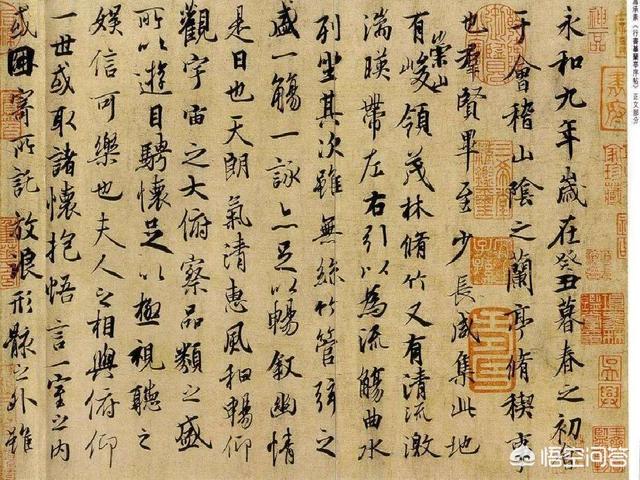 馮承素《行書摹蘭亭序帖》正文部分
永和九年歲在癸丑暮春之初會
于會稽山陰之蘭亭脩稧事
也羣賢畢至少長咸集此地
有崇山峻領茂林脩竹又有清流激
湍暎帶左右引以為流觴曲水
列坐其次雖無絲竹管弦之
盛一觴一詠亦足以暢敘幽情
是日也天朗氣清惠風和暢仰
觀宇宙之大俯察品類之盛
所以遊目騁懷足以極視聽之
娛信可樂也夫人之相與俯仰
一世或取諸懷抱悟言一室之內
或因寄所託放浪形骸之外雖
悟空问答